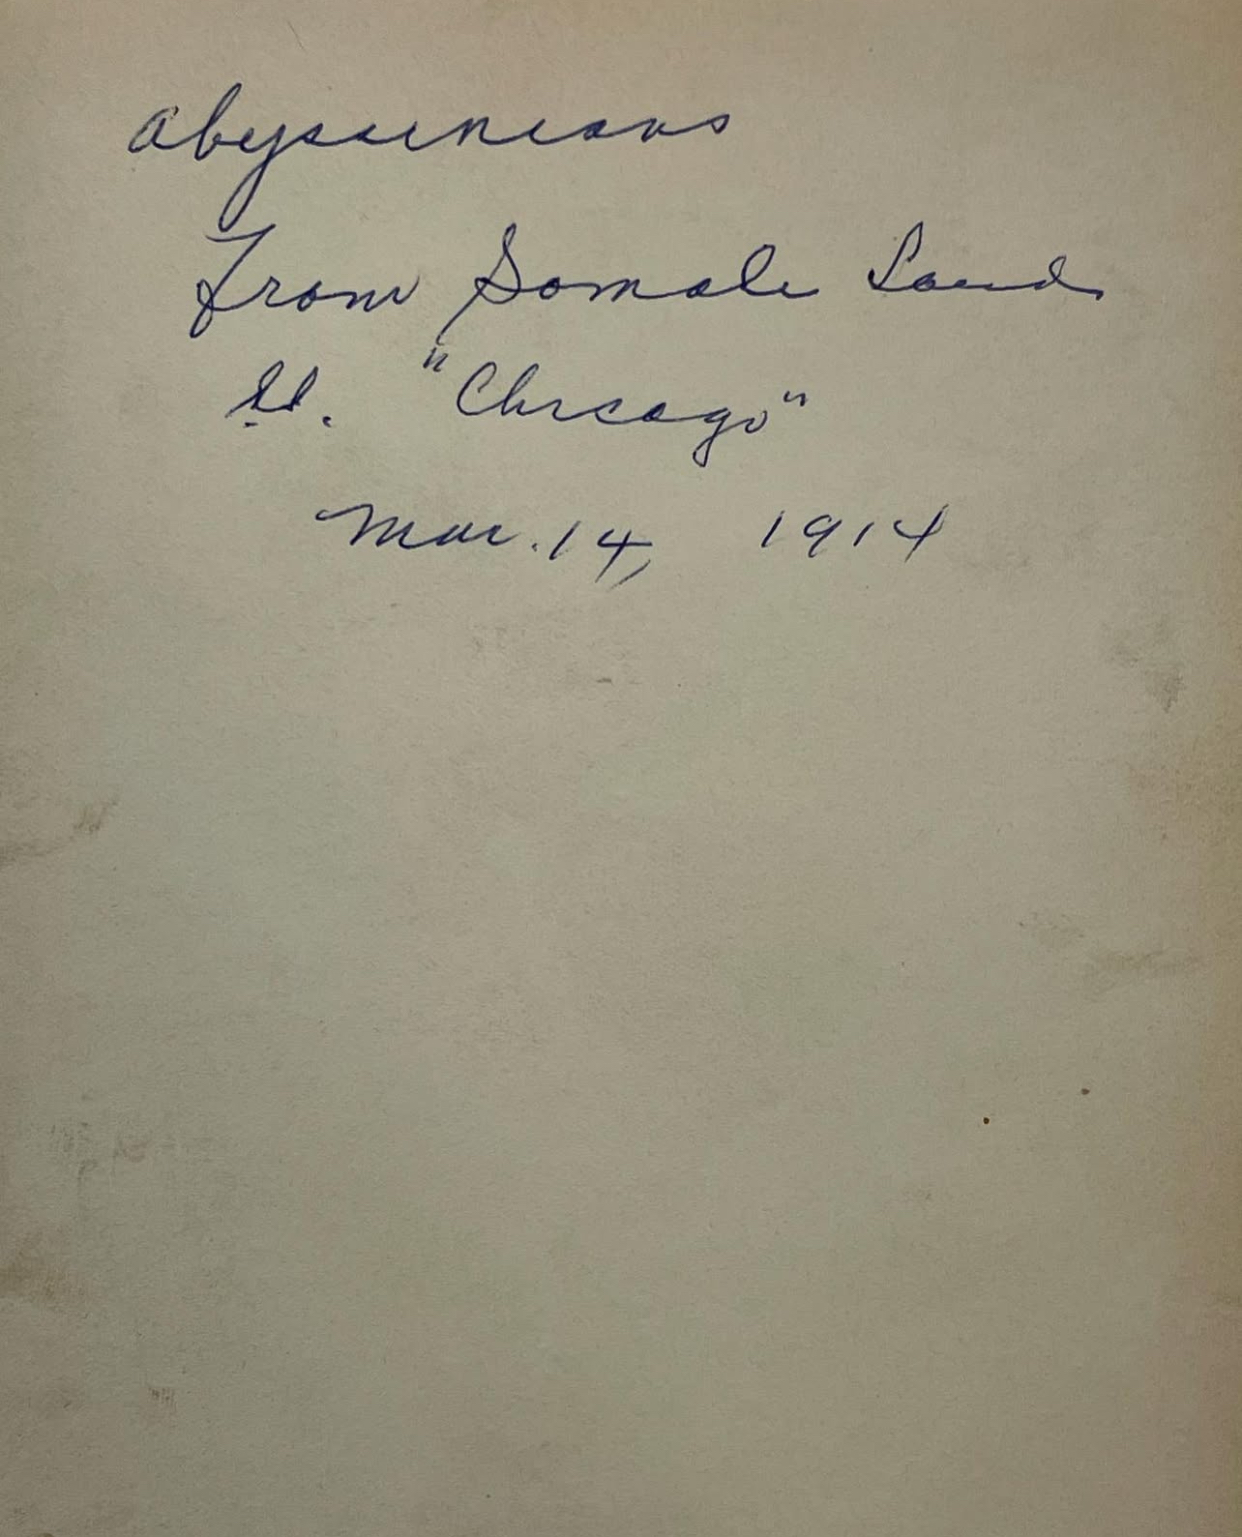 Abyssinians
From Somali Land
S.S. "Chicago"
Mar. 14, 1914